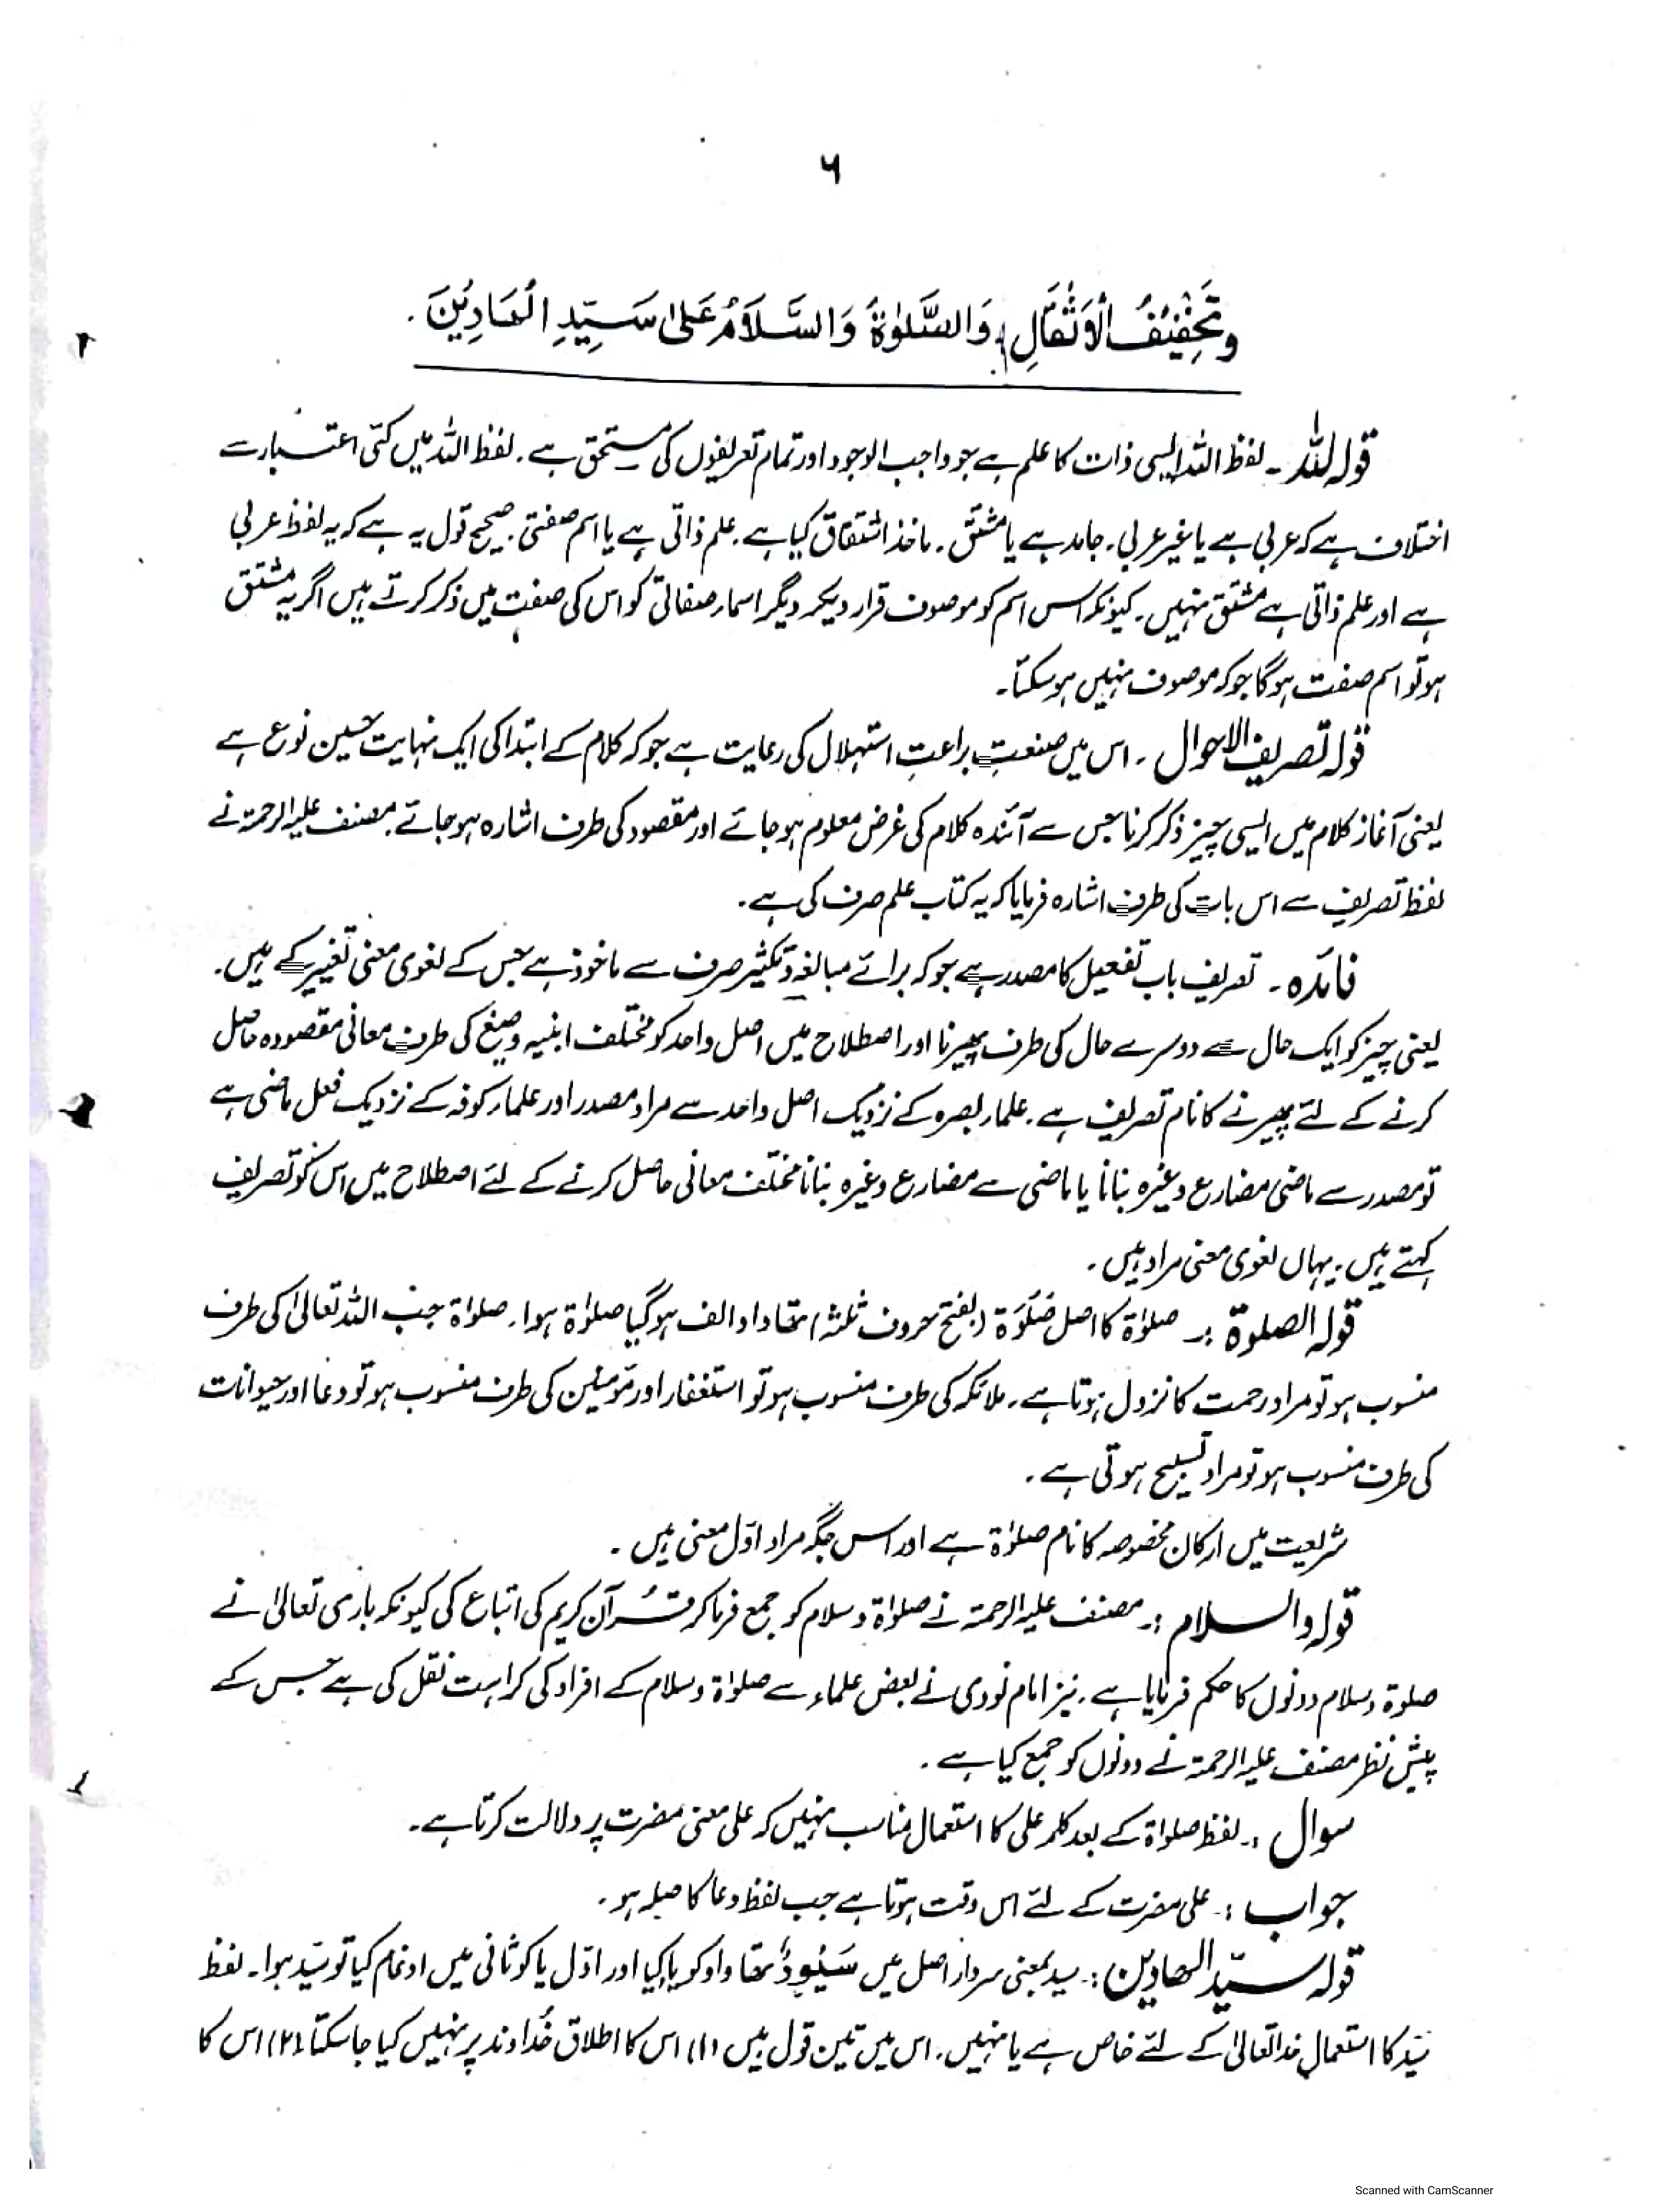 ۶
وَتَخْفِيْفُ الْاَثْقَالِ، وَالصَّلٰوةُ وَالسَّلَامُ عَلٰى سَيِّدِ الْهَادِيْنَ.
قولہ للّٰہ ۔ لفظ اللہ ایسی ذات کا علم ہے جو واجب الوجود اور تمام تعریفوں کی مستحق ہے ۔ لفظ اللہ میں کئی اعتبار سے
اختلاف ہے کہ عربی ہے یا غیر عربی ۔ جامد ہے یا مشتق ۔ ماخذ اشتقاق کیا ہے ۔ علم ذاتی ہے یا اسم صفتی ۔ صحیح قول یہ ہے کہ یہ لفظ عربی
ہے اور علم ذاتی ہے مشتق نہیں ۔ کیونکہ اس اسم کو موصوف قرار دیکر دیگر اسمار صفاتی کو اس کی صفت میں ذکر کرتے ہیں اگر یہ مشتق
ہو تو اسم صفت ہوگا جو کہ موصوف نہیں ہو سکتا ۔
قولہ تصریف الاحوال ۔ اس میں صنعتِ براعتِ استہلال کی رعایت ہے جو کہ کلام کے ابتدا کی ایک نہایت حسین نوع ہے
یعنی آغاز کلام میں ایسی چیز ذکر کرنا جس سے آئندہ کلام کی غرض معلوم ہو جائے اور مقصود کی طرف اشارہ ہو جائے ۔ مصنف علیہ الرحمۃ نے
لفظ تصریف سے اس بات کی طرف اشارہ فرمایا کہ یہ کتاب علم صرف کی ہے ۔
فائدہ ۔ تصریف باب تفعیل کا مصدر ہے جو کہ برائے مبالغہ و تکثیر صرف سے ماخوذ ہے جس کے لغوی معنی تغییر کے ہیں ۔
یعنی چیز کو ایک حال سے دوسرے حال کی طرف پھیرنا اور اصطلاح میں اصل واحد کو مختلف ابنیہ و صیغ کی طرف معانی مقصودہ حاصل
کرنے کے لئے پھیرنے کا نام تصریف ہے ۔ علمار بصرہ کے نزدیک اصل واحد سے مراد مصدر اور علمار کوفہ کے نزدیک فعل ماضی ہے
تو مصدر سے ماضی مضارع وغیرہ بنانا یا ماضی سے مضارع وغیرہ بنانا مختلف معانی حاصل کرنے کے لئے اصطلاح میں اس کو تصریف
کہتے ہیں ۔ یہاں لغوی معنی مراد ہیں ۔
قولہ الصلوۃ :۔ صلوٰۃ کا اصل صَلَوَۃ (بفتح حروف ثلثہ) تھا واو الف ہو گیا صلوٰۃ ہوا ۔ صلوٰۃ جب اللہ تعالیٰ کی طرف
منسوب ہو تو مراد رحمت کا نزول ہوتا ہے ۔ ملائکہ کی طرف منسوب ہو تو استغفار اور مؤمنین کی طرف منسوب ہو تو دعا اور حیوانات
کی طرف منسوب ہو تو مراد تسبیح ہوتی ہے ۔
شریعت میں ارکان مخصوصہ کا نام صلوٰۃ ہے اور اس جگہ مراد اوّل معنی ہیں ۔
قولہ والسلام :۔ مصنف علیہ الرحمۃ نے صلوٰۃ و سلام کو جمع فرما کر قُرآن کریم کی اتباع کی کیونکہ باری تعالیٰ نے
صلوۃ و سلام دونوں کا حکم فرمایا ہے ۔ نیز امام نووی نے بعض علماء سے صلوٰۃ و سلام کے افراد کی کراہت نقل کی ہے جس کے
پیش نظر مصنف علیہ الرحمۃ نے دونوں کو جمع کیا ہے ۔
سوال :۔ لفظ صلوٰۃ کے بعد کلمہ علی کا استعمال مناسب نہیں کہ علی معنی مضرت پر دلالت کرتا ہے ۔
جواب :۔ علی مضرت کے لئے اس وقت ہوتا ہے جب لفظ دعا کا صلہ ہو ۔
قولہ سیّد الھادین :۔ سید بمعنی سردار اصل میں سَیْوِدٌ تھا واو کو یا کیا اور اوّل یا کو ثانی میں ادغام کیا تو سیّد ہوا ۔ لفظ
سیّد کا استعمال خدا تعالیٰ کے لئے خاص ہے یا نہیں ۔ اس میں تین قول ہیں (۱) اس کا اطلاق خُداوند پر نہیں کیا جا سکتا (۲) اس کا
Scanned with CamScanner